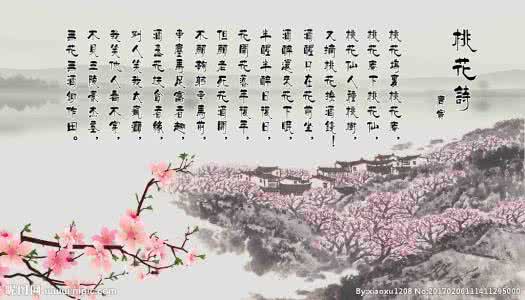 桃花詩
唐寅
桃花塢裏桃花庵，
桃花庵下桃花仙，
桃花仙人種桃樹，
又摘桃花換酒錢！
酒醒只在花前坐，
酒醉還來花下眠，
半醒半醉日復日，
花開花落年復年。
但願老死花酒間，
不願鞠躬車馬前，
車塵馬足富者趣，
酒盞花枝貧者緣。
別人笑我太瘋癲，
我笑他人看不穿，
不見五陵豪杰墓，
無花無酒鋤作田。
昵图网
By:xiaoxu1208 No:20170206111411295000